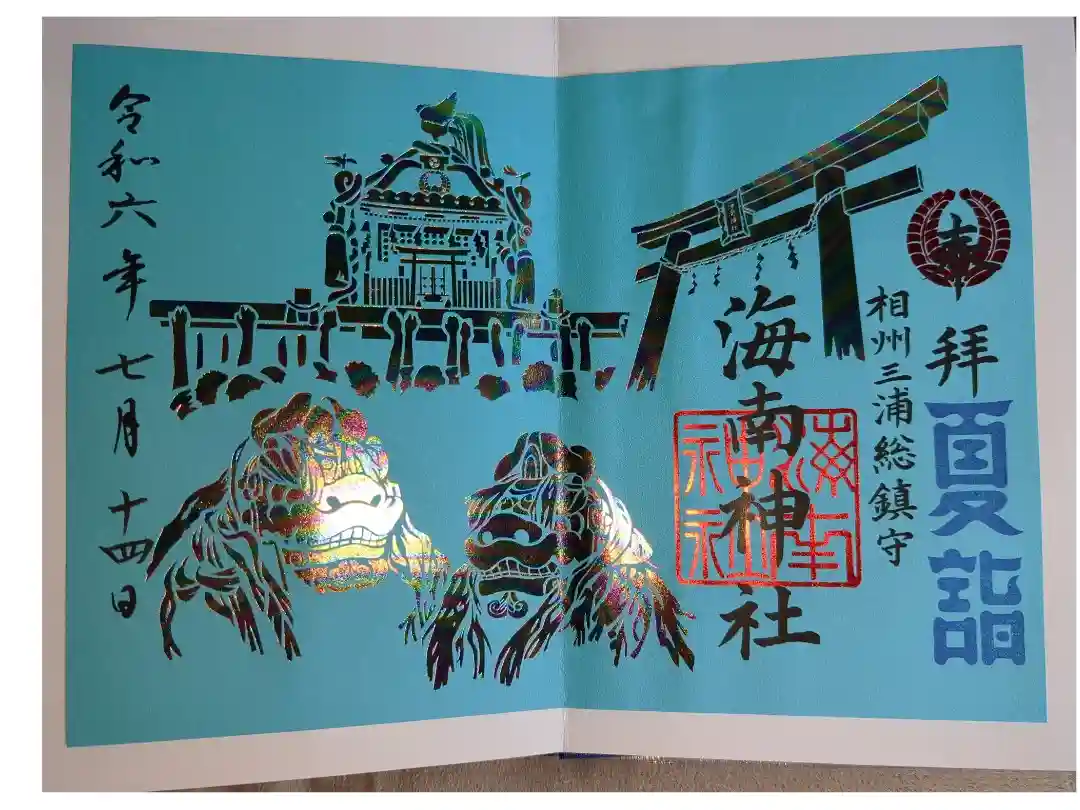 奉拝
夏詣
相州三浦総鎮守
海南神社
海南神社
令和六年七月十四日